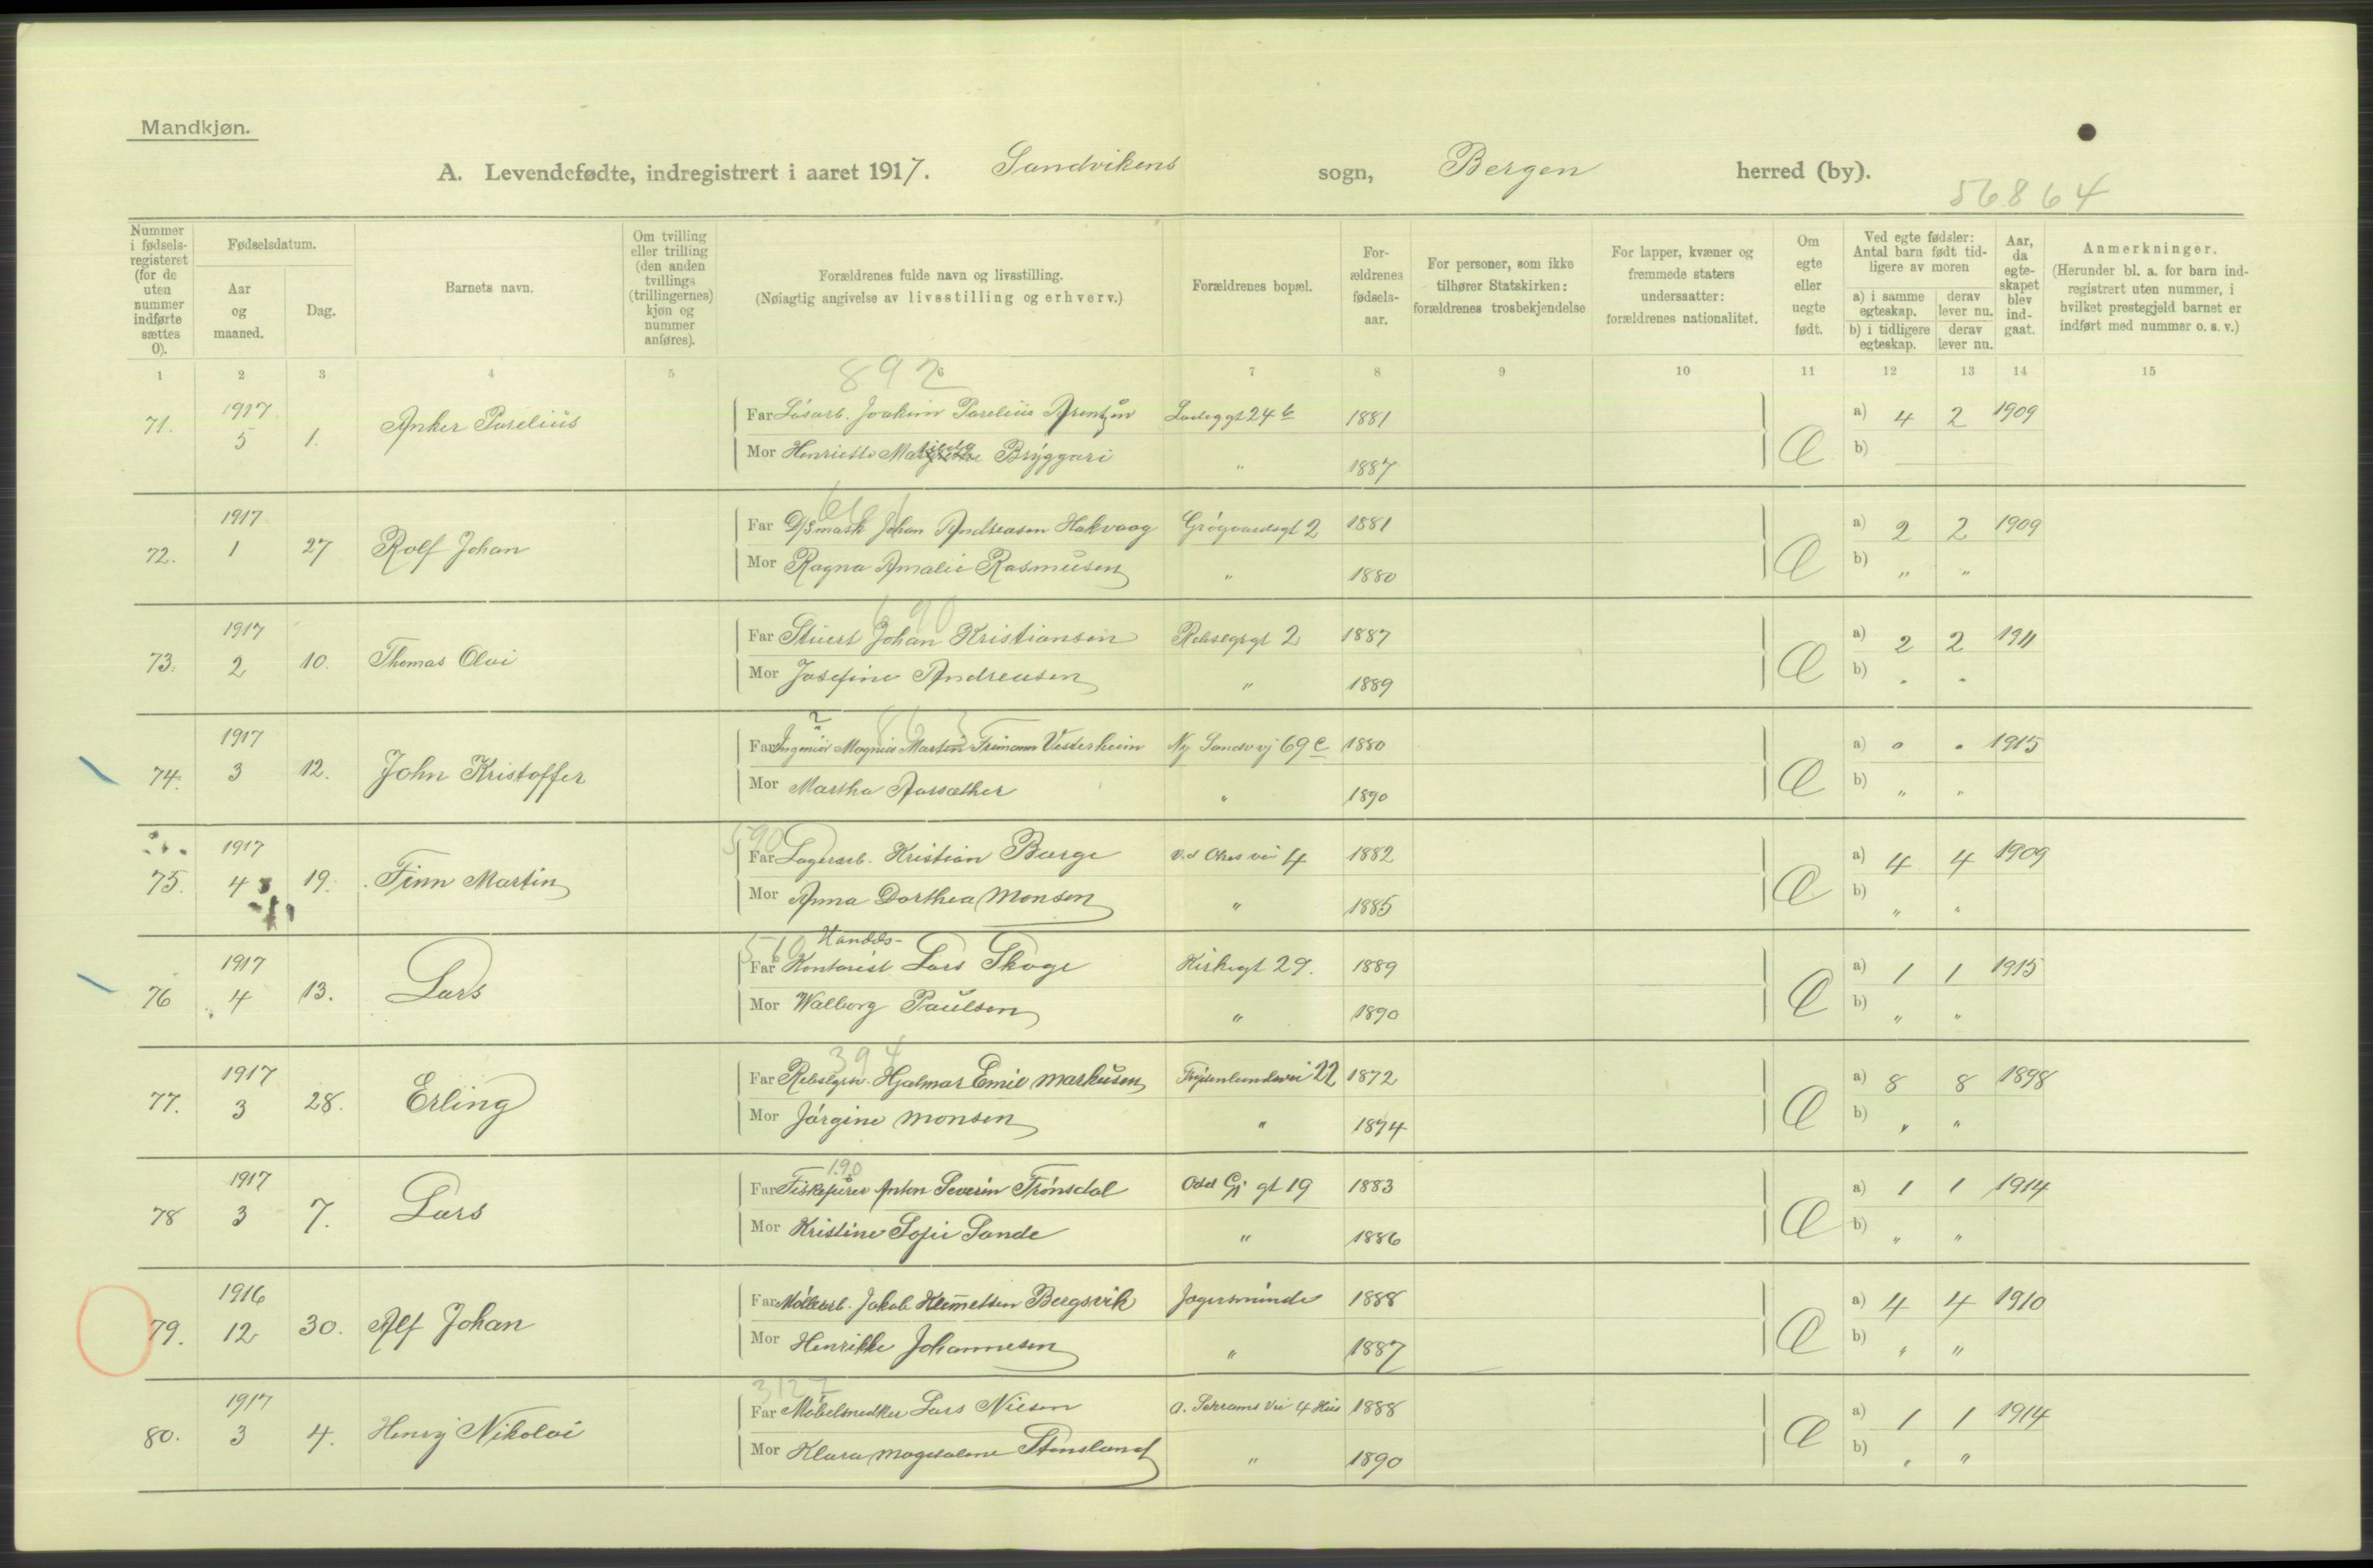 Mandkjøn.
A. Levendefødte, indregistrert i aaret 1917. Sandvikens sogn, Bergen herred (by).
56864
Nummer i fødselsregisteret (for de uten nummer indførte sættes 0).
Fødselsdatum.
Aar og maaned.
Dag.
Barnets navn.
Om tvilling eller trilling (den anden tvillings (trillingernes) kjøn og nummer anføres).
Forældrenes fulde navn og livsstilling.
(Nøiagtig angivelse av livsstilling og erhverv.)
Forældrenes bopæl.
Forældrenes fødselsaar.
For personer, som ikke tilhører Statskirken: forældrenes trosbekjendelse
For lapper, kvæner og fremmede staters undersaatter: forældrenes nationalitet.
Om egte eller uegte født.
Ved egte fødsler: Antal barn født tidligere av moren
a) i samme egteskap. derav lever nu.
b) i tidligere egteskap. derav lever nu.
Aar, da egteskapet blev indgaat.
Anmerkninger.
(Herunder bl. a. for barn indregistrert uten nummer, i hvilket prestegjeld barnet er indført med nummer o. s. v.)
1 2 3 4 5 6 7 8 9 10 11 12 13 14 15
892
71. 1917 5 1. Anker Parelius Far Løsarb. Joakim Parelius Arentzen 24 b 1881 a) 4 2 1909
Mor Henriette Bryggari " 1887 E b)
72. 1917 1 27 Rolf Johan Far D/S mask Johan Andreasen Hakvaag Grøgaardsgt 2 1881 a) 2 2 1909
Mor Ragna Amalie Rasmussen " 1880 E b) " "
690
73. 1917 2 10. Thomas Olai Far Stuert Johan Kristiansen Rebslegrgt 2 1887 a) 2 2 1911
Mor Josefine Andreasen " 1889 E b) " "
863
74. 1917 3 12. John Kristoffer Far Ingeniør Magnus Martin Vesterheim Ny Sandvvj 69 c 1880 a) " " 1915
Mor Martha Aarsæther " 1890 E b) " "
590
75. 1917 4 19. Finn Martin Far Lagerarb. Kristian Borge 4 1882 a) 4 4 1909
Mor Anna Dorthea Monsen " 1885 E b) " "
510 Handels-
76 1917 4 13. Lars Far Kontorist Lars Skage Kirkegt 29. 1889 a) 1 1 1915
Mor Walborg Paulsen " 1890 E b) " "
394
77. 1917 3 28. Erling Far Hjalmar Emil Markusen Frydenlundsvei 22 1872 a) 8 8 1898
Mor Jørgine Monsen " 1874 E b) " "
190
78 1917 3 7. Lars Far Anton Severin Trønsdal Odd Gj gt 19 1883 a) 1 1 1914
Mor Kristine Sofie Sande " 1886 E b) " "
79. 1916 12 30. Alf Johan Far Møllearb. Jakob Klemetsen Bergsvik Jægersminde 1888 a) 4 4 1910
Mor Henrikke Johannesen " 1887 E b) " "
3127
80. 1917 3 4. Henry Nikolai Far Møbelsnedker Lars Nilsen A. Skrams Vei 4 Hus 1888 a) 1 1 1914
Mor Klara Magdalene Stensland " 1890 E b) " "